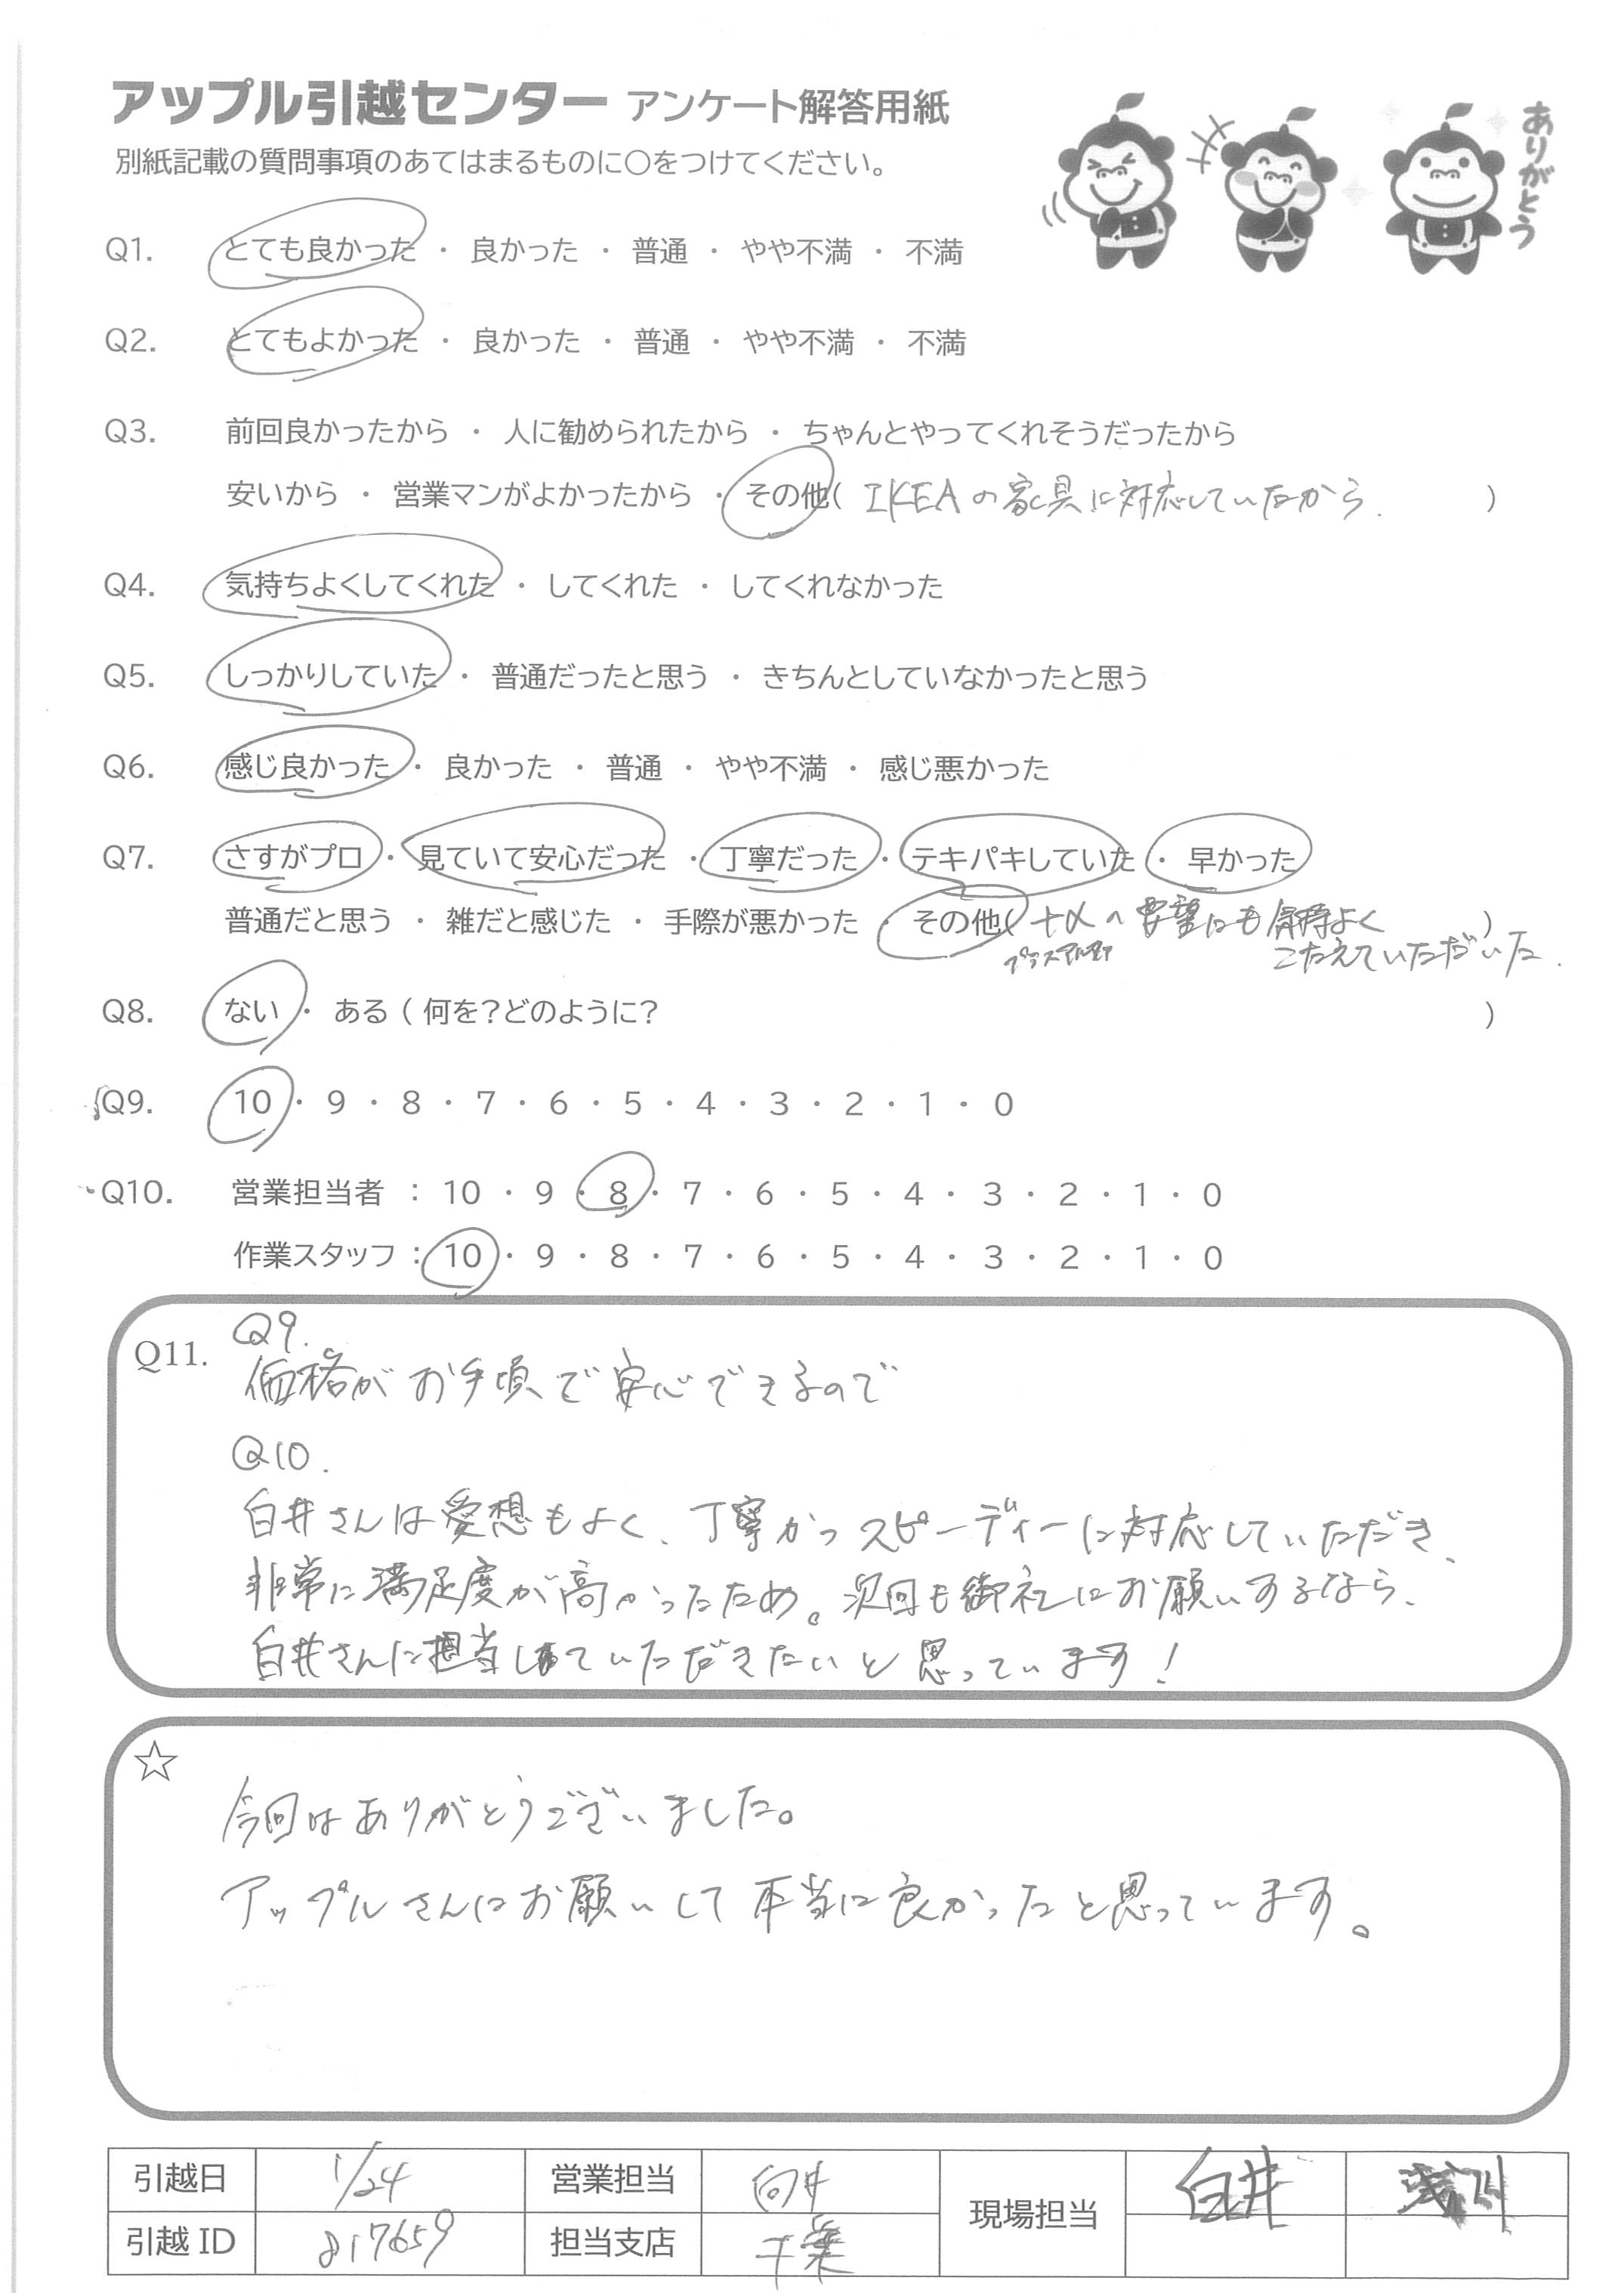 アップル引越センター アンケート解答用紙
別紙記載の質問事項のあてはまるものに○をつけてください。
ありがとう
Q1. とても良かった ・ 良かった ・ 普通 ・ やや不満 ・ 不満
Q2. とてもよかった ・ 良かった ・ 普通 ・ やや不満 ・ 不満
Q3. 前回良かったから ・ 人に勧められたから ・ ちゃんとやってくれそうだったから
安いから ・ 営業マンがよかったから ・ その他( IKEAの家具に対応していたから. )
Q4. 気持ちよくしてくれた ・ してくれた ・ してくれなかった
Q5. しっかりしていた ・ 普通だったと思う ・ きちんとしていなかったと思う
Q6. 感じ良かった ・ 良かった ・ 普通 ・ やや不満 ・ 感じ悪かった
Q7. さすがプロ ・ 見ていて安心だった ・ 丁寧だった ・ テキパキしていた ・ 早かった
普通だと思う ・ 雑だと感じた ・ 手際が悪かった ・ その他( +αへ要望にも気持よく )
プラスアルファ こたえていただいた.
Q8. ない ・ ある ( 何を?どのように? )
Q9. 10 ・ 9 ・ 8 ・ 7 ・ 6 ・ 5 ・ 4 ・ 3 ・ 2 ・ 1 ・ 0
Q10. 営業担当者 : 10 ・ 9 ・ 8 ・ 7 ・ 6 ・ 5 ・ 4 ・ 3 ・ 2 ・ 1 ・ 0
作業スタッフ : 10 ・ 9 ・ 8 ・ 7 ・ 6 ・ 5 ・ 4 ・ 3 ・ 2 ・ 1 ・ 0
Q11. Q9.
価格がお手頃で安心できるので
Q10.
白井さんは愛想もよく、丁寧かつスピーディーに対応していただき、
非常に満足度が高かったため。次回も御社にお願いするなら、
白井さんに担当していただきたいと思っています!
☆
今回はありがとうございました。
アップルさんにお願いして本当に良かったと思っています。
引越日 1/24 営業担当 向井 現場担当 白井 浅川
引越ID 817659 担当支店 千葉